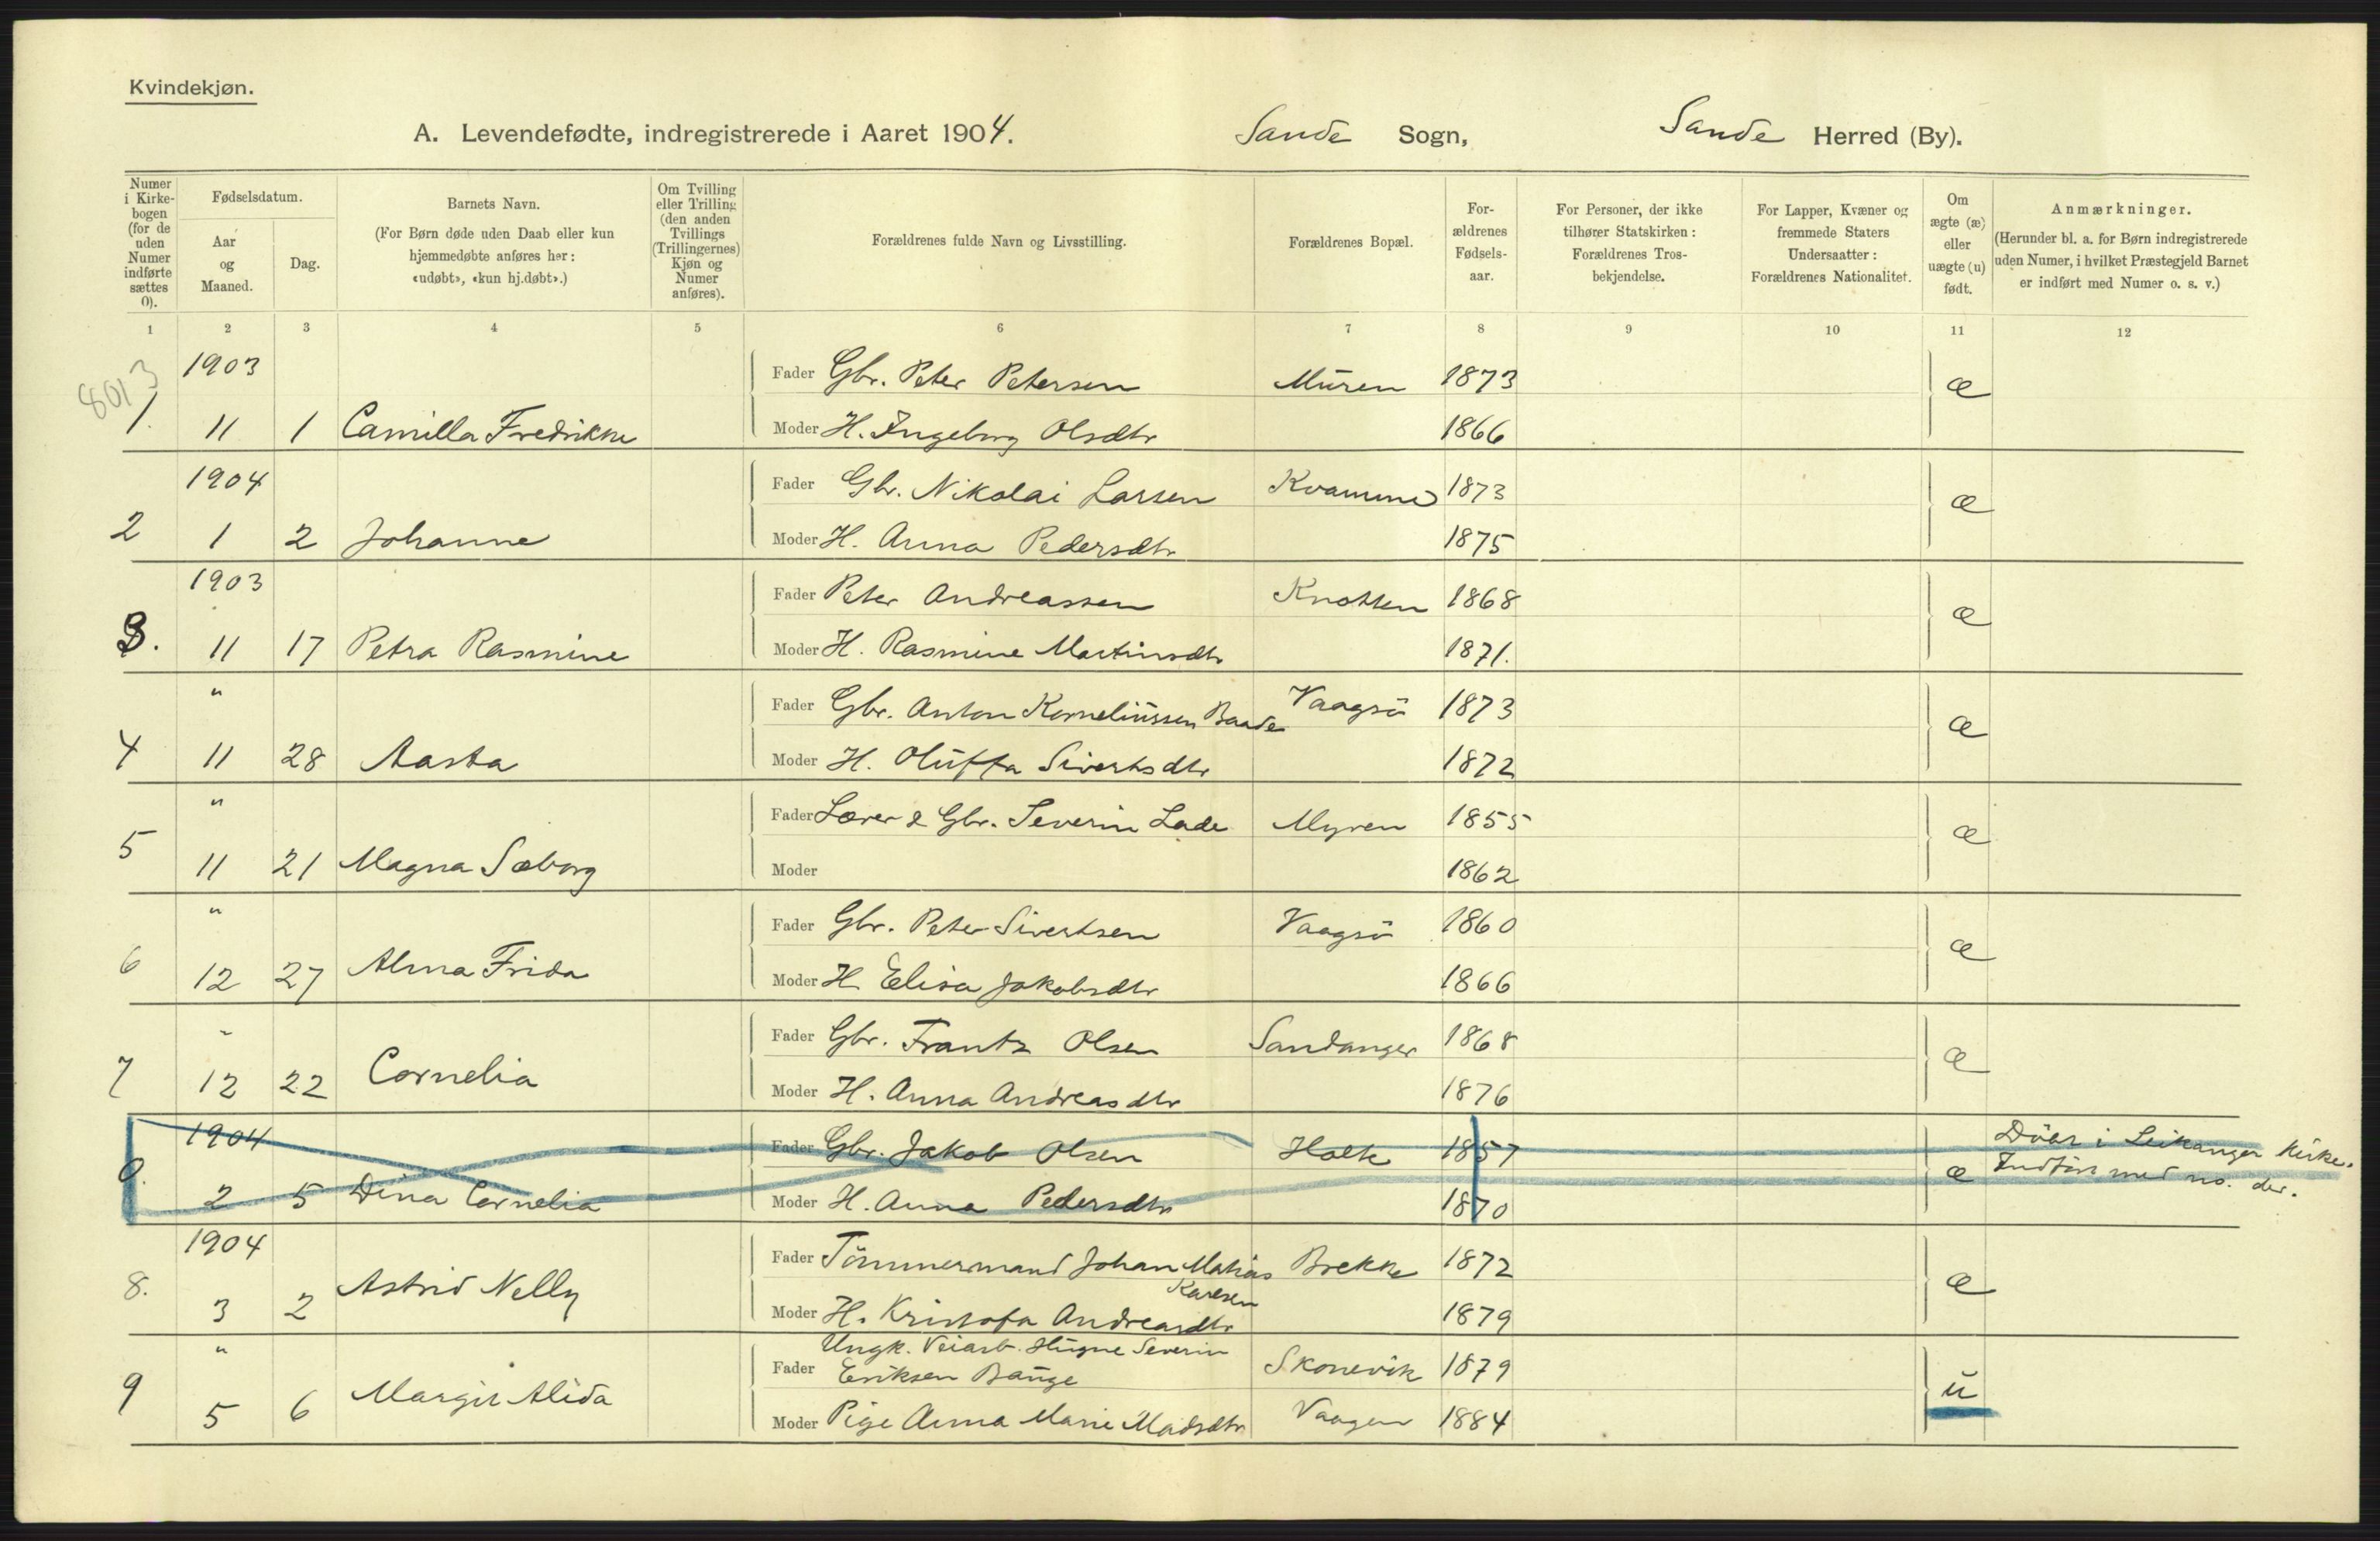 Kvindekjøn.
A. Levendefødte, indregistrerede i Aaret 1904. Sande Sogn, Sande Herred (By).
Numer i Kirkebogen (for de uden Numer indførte sættes 0).
Fødselsdatum.
Aar og Maaned.
Dag.
Barnets Navn.
(For Børn døde uden Daab eller kun hjemmedøbte anføres her: «udøbt», «kun hj.døbt».)
Om Tvilling eller Trilling (den anden Tvillings (Trillingernes) Kjøn og Numer anføres).
Forældrenes fulde Navn og Livsstilling.
Forældrenes Bopæl.
Forældrenes Fødselsaar.
For Personer, der ikke tilhører Statskirken: Forældrenes Trosbekjendelse.
For Lapper, Kvæner og fremmede Staters Undersaatter: Forældrenes Nationalitet.
Om ægte (æ) eller uægte (u) født.
Anmærkninger.
(Herunder bl. a. for Børn indregistrerede uden Numer, i hvilket Præstegjeld Barnet er indført med Numer o. s. v.)
1 2 3 4 5 6 7 8 9 10 11 12
8013
1903 Fader Gbr. Peter Petersen Muren 1873 æ
1. 11 1 Camilla Fredrikke Moder H. Ingeborg Olsdtr 1866
1904 Fader Gbr. Nikolai Larsen Kvamme 1873 æ
2 1 2 Johanne Moder H. Anna Pedersdtr 1875
1903 Fader Peter Andreassen Knotten 1868 æ
3. 11 17 Petra Rasmine Moder H. Rasmine Martinsdtr 1871.
" Fader Gbr. Anton Korneliussen Baade Vaagsö 1873 æ
4 11 28 Aasta Moder H. Oluffa Sivertsdtr 1872
" Fader Lærer & Gbr. Severin Lade Myren 1855 æ
5 11 21 Magna Sæborg Moder 1862
" Fader Gbr. Peter Sivertsen Vaagsö 1860 æ
6 12 27 Alma Frida Moder H. Elisa Jakobsdtr 1866
" Fader Gbr. Frantz Olsen Sandanger 1868 æ
7 12 22 Cornelia Moder H. Anna Andreasdtr 1876
1904 Fader Gbr. Jakob Olsen 1857 æ Döbt i Leikanger Kirke.
0. 2 5 Dina Cornelia Moder H. Anna Pedersdtr 1870 Indfört med no. der.
1904 Fader Tömmermand Johan Mathias Brekke 1872 æ
Karlsen
8. 3 2 Astrid Nelly Moder H. Kristofa Andreasdtr 1879
" Ungk. Veiarb. Severin
Fader Eriksen Bauge Skonevik 1879 u
9 5 6 Margit Alida Moder Pige Anna Marie Madsdtr Vaagen 1884